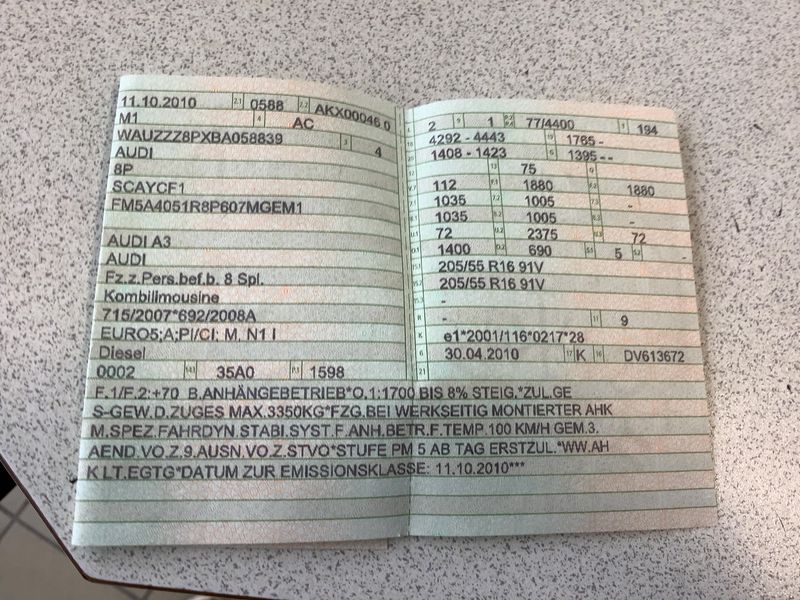 11.10.2010 2.1 0588 2.2 AKX00046 0
M1 4 AC
WAUZZZ8PXBA058839 3 4
AUDI
8P
SCAYCF1
FM5A4051R8P607MGEM1
AUDI A3
AUDI
Fz.z.Pers.bef.b. 8 Spl.
Kombilimousine
715/2007*692/2008A
EURO5;A;PI/CI; M, N1 I
Diesel
0002 35A0 P.1 1598
2 9 1 77/4400 194
4292 - 4443 1765 -
1408 - 1423 1395 - -
75
112 F.1 1880 F.2 1880
1035 1005 -
1035 1005 -
72 2375 72
1400 690 S.1 5 S.2 -
205/55 R16 91V
205/55 R16 91V
-
R - 11 9
K e1*2001/116*0217*28
6 30.04.2010 17 K 16 DV613672
21
F.1/F.2:+70 B.ANHÄNGEBETRIEB*O.1:1700 BIS 8% STEIG.*ZUL.GE
S-GEW.D.ZUGES MAX.3350KG*FZG.BEI WERKSEITIG MONTIERTER AHK
M.SPEZ.FAHRDYN.STABI.SYST.F.ANH.BETR.F.TEMP.100 KM/H GEM.3.
AEND.VO.Z.9.AUSN.VO.Z.STVO*STUFE PM 5 AB TAG ERSTZUL.*WW.AH
K LT.EGTG*DATUM ZUR EMISSIONSKLASSE: 11.10.2010***